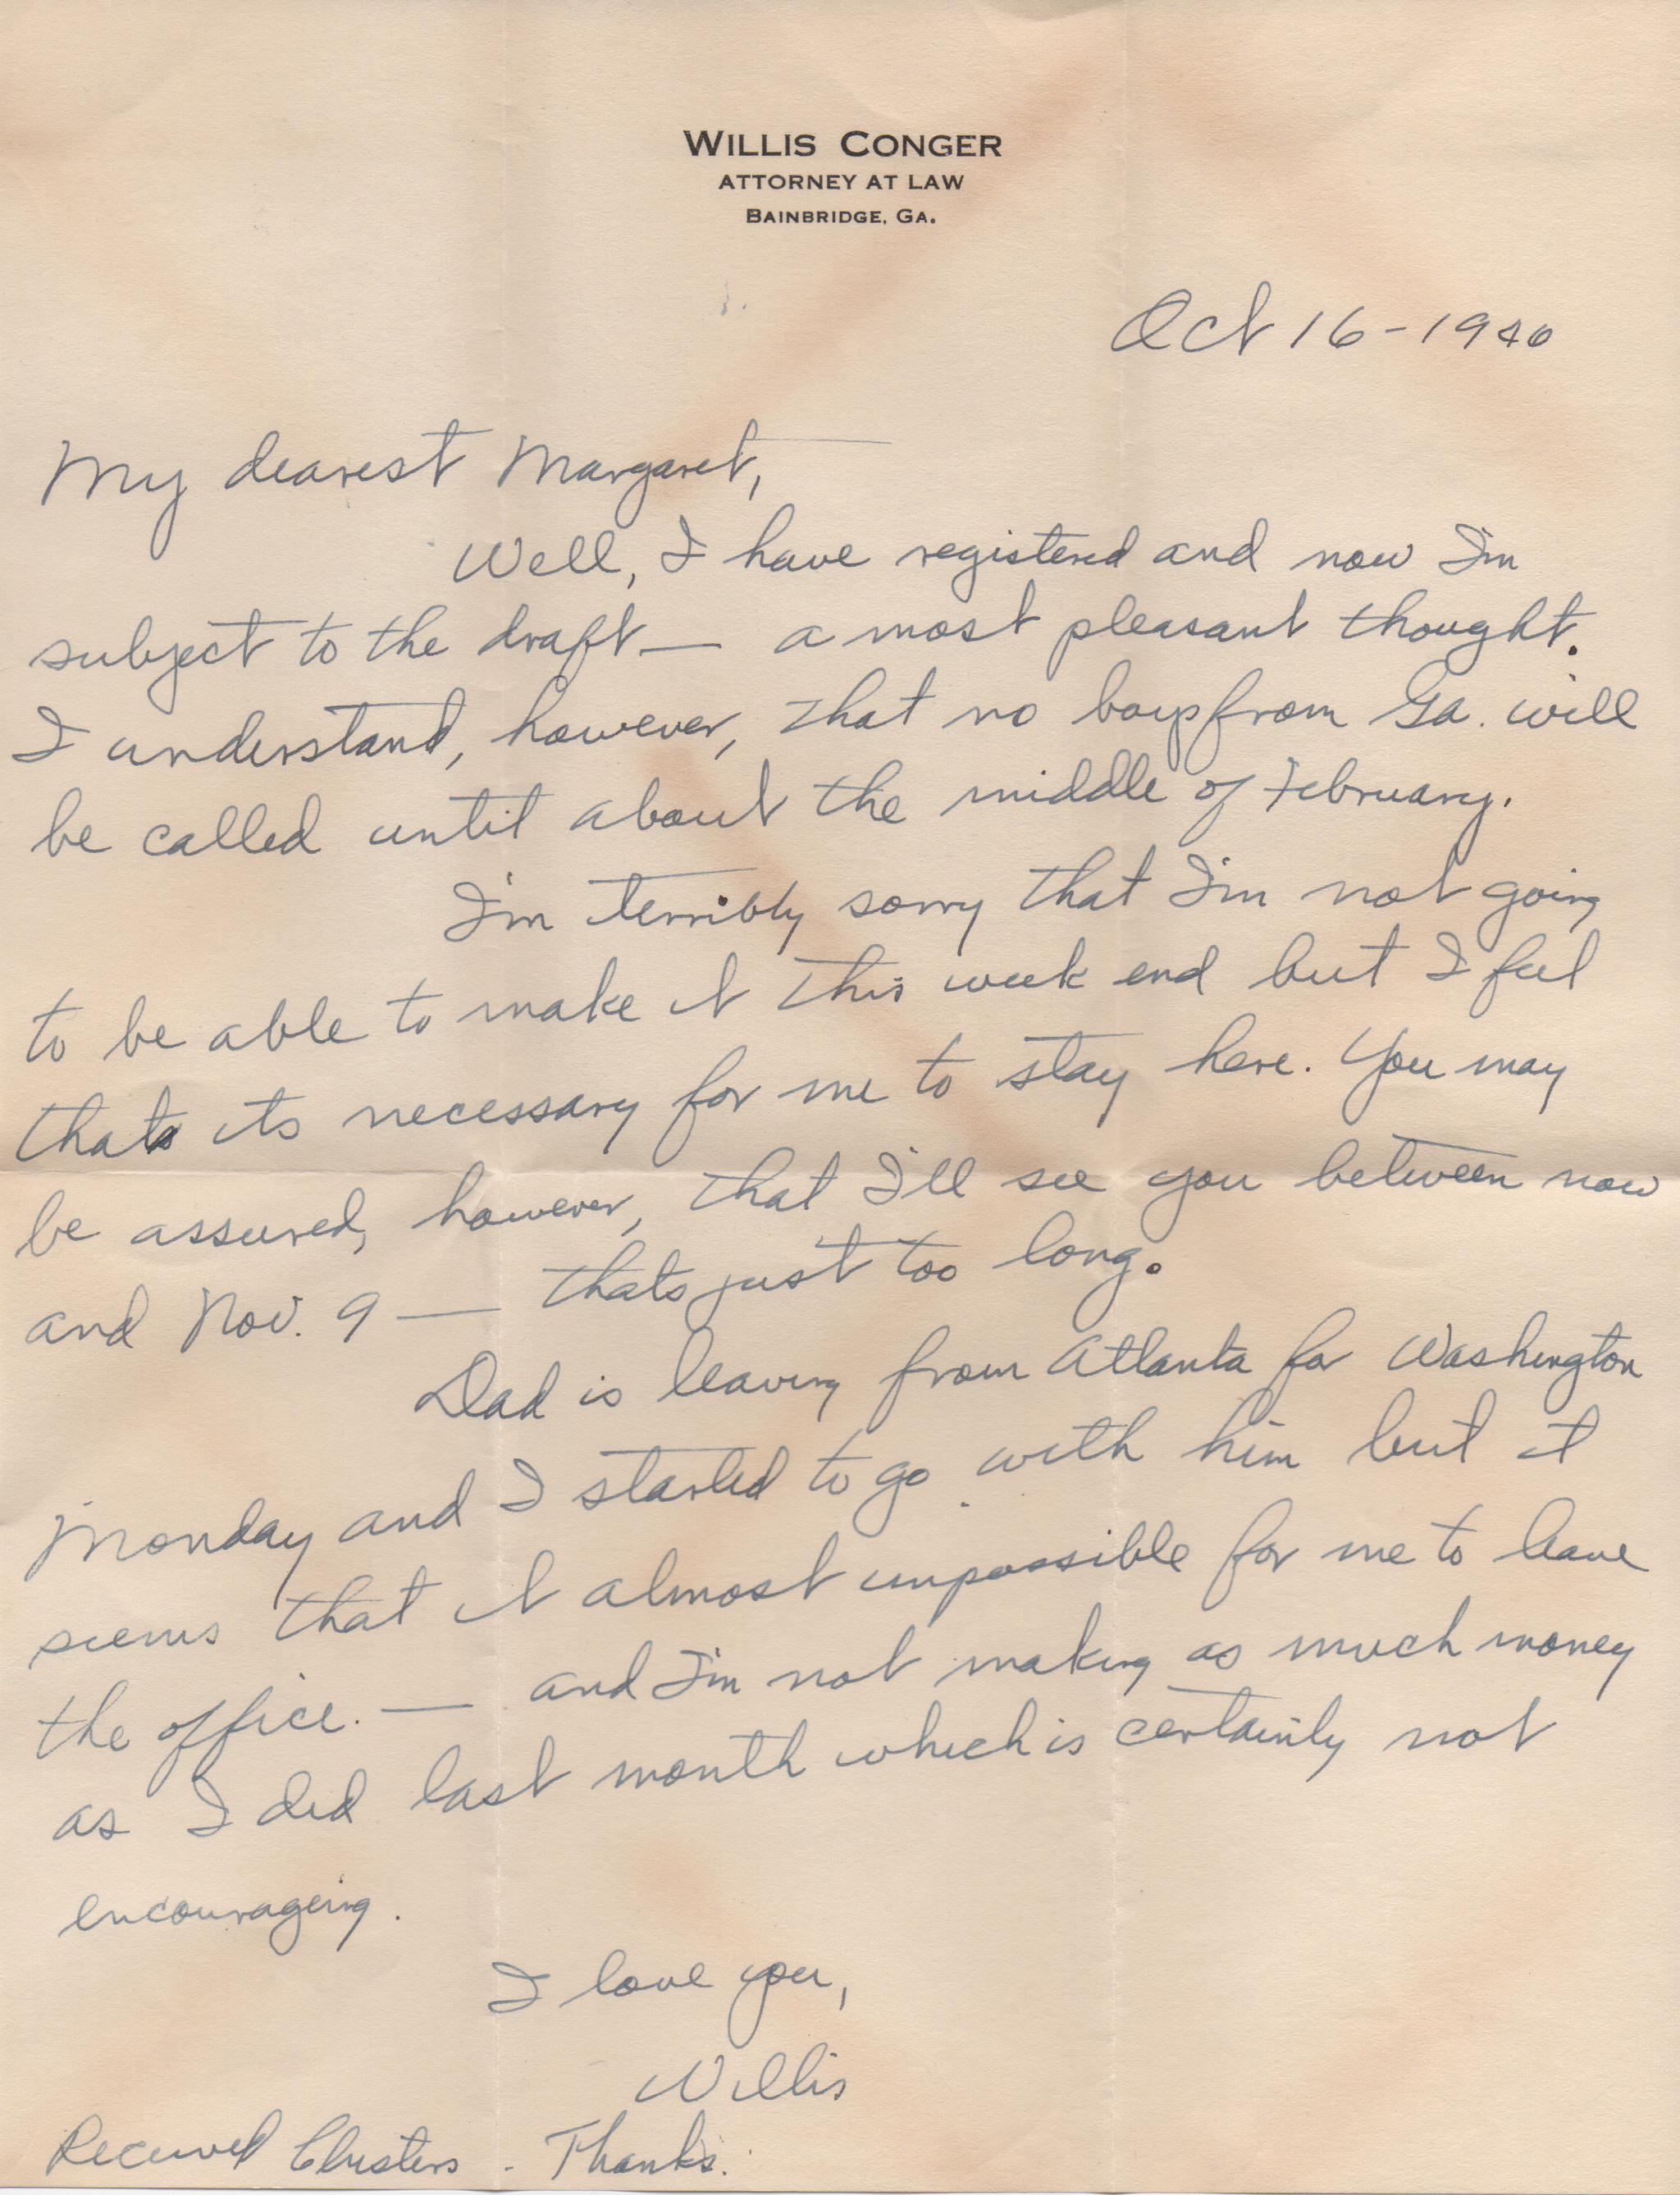 WILLIS CONGER
ATTORNEY AT LAW
BAINBRIDGE, GA.
Oct 16-1940
My dearest Margaret,
Well, I have registered and now I'm
subject to the draft — a most pleasant thought.
I understand, however, that no boys from Ga. will
be called until about the middle of February.
I'm terribly sorry that I'm not going
to be able to make it this week end but I feel
thats its necessary for me to stay here. You may
be assured, however, that I'll see you between now
and Nov. 9 — thats just too long.
Dad is leaving from Atlanta for Washington
Monday and I started to go with him but it
seems that it almost impossible for me to leave
the office. — and I'm not making as much money
as I did last month which is certainly not
encourageing.
I love you,
Willis
Received Clusters - Thanks.